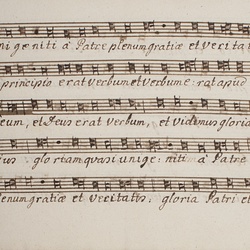 ni geniti à Patre plenum gratiæ et verita
principio erat verbum et verbum e: rat apud
eum, et Deus erat verbum, et vidimus gloria
ius gloriam quasi unige: niti à Patre
lenum gratiæ et veritatis: gloria Patri et